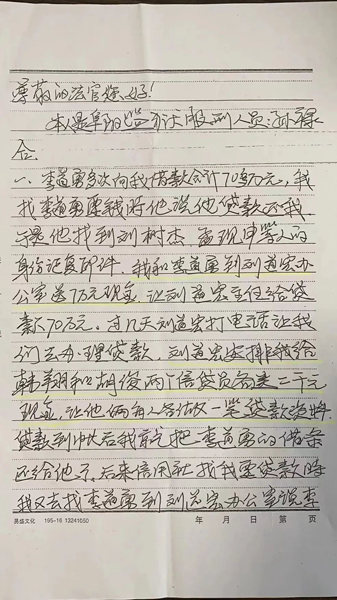 尊敬的法官您好!
本人是阜阳监狱服刑人员
合.
一、李道勇多次向我借款合计70多万元,我
找李道勇要钱时他说他贷款还我,
于是他找到刘树杰,孟现中等人的
身份证复印件,我和李道勇到刘道宏办
公室送7万元现金,让刘道宏主任给贷
款70万元.过几天刘道宏打电话让我
们去办理贷款,刘道宏安排我给
韩翔和胡俊两个信贷员各送二千元
现金,让他俩每人各做一笔贷款资料
贷款到帐后我就把李道勇的借条
还给他了,后来信用社找我要贷款时
我又去找李道勇到刘道宏办公室说李
昊盛文化 195-16 13241650 年 月 日 第 页